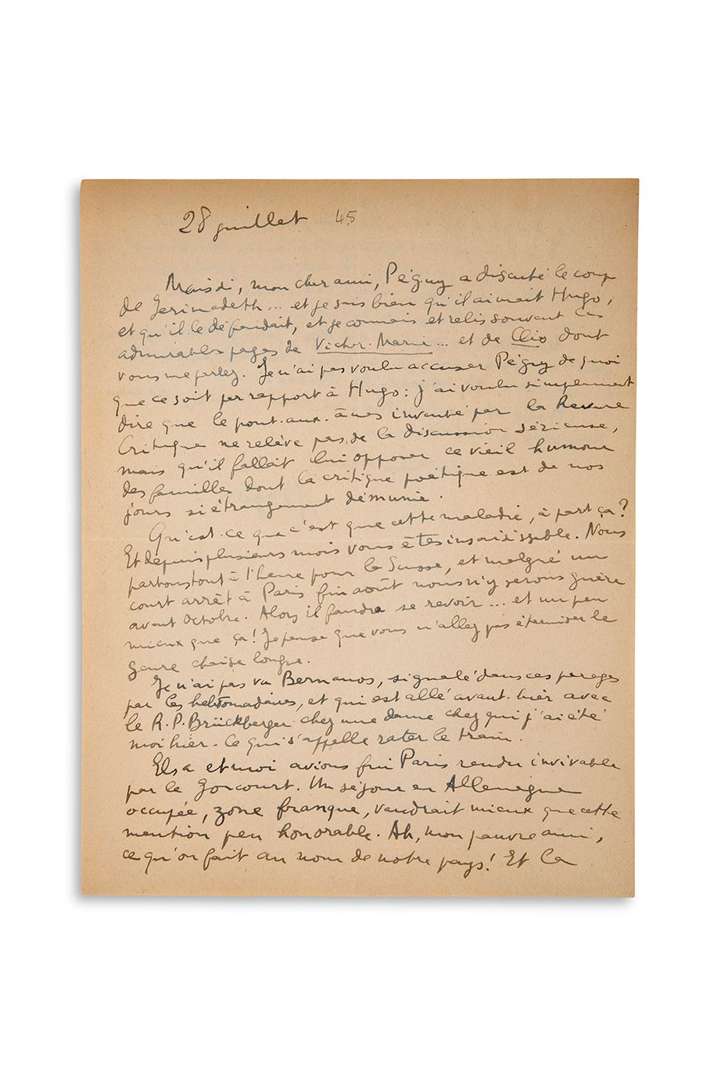 28 juillet 45
Mais si, mon cher ami, Péguy a discuté le coup
de Jerimadeth... et je sais bien qu'il aimait Hugo,
et qu'il le défendait, et je connais et relis souvent les
admirables pages de Victor-Marie... et de Clio dont
vous me parlez. Je n'ai pas voulu accuser Péguy de quoi
que ce soit par rapport à Hugo : j'ai voulu simplement
dire que le pont-aux-ânes inventé par la Revue
Critique ne relève pas de la discussion sérieuse,
mais qu'il fallait lui opposer ce vieil humour
des familles dont la critique poétique est de nos
jours si étrangement démunie.
Qu'est-ce que c'est que cette maladie, à part ça ?
Et depuis plusieurs mois vous êtes insaisissable. Nous
partons tout à l'heure pour la Suisse, et malgré un
court arrêt à Paris fin août nous n'y serons guère
avant octobre. Alors il faudra se revoir... et un peu
mieux que ça ! Je pense que vous n'allez pas éterniser le
genre chaise longue.
Je n'ai pas vu Bernanos, signalé dans ces parages
par les hebdomadaires, et qui est allé avant-hier avec
le R.P. Brückberger chez une dame chez qui j'ai été
moi hier. Ce qui s'appelle rater le train.
Elsa et moi avions fui Paris rendu invivable
par le Goncourt. Un séjour en Allemagne
occupée, zone franque, vaudrait mieux que cette
mention peu honorable. Ah, mon pauvre ami,
ce qu'on fait au nom de notre pays ! Et la